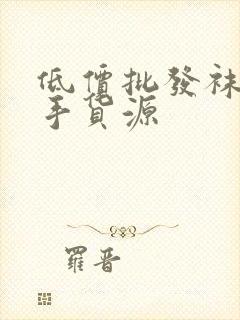 低價批發袜
手貨源
羅晋